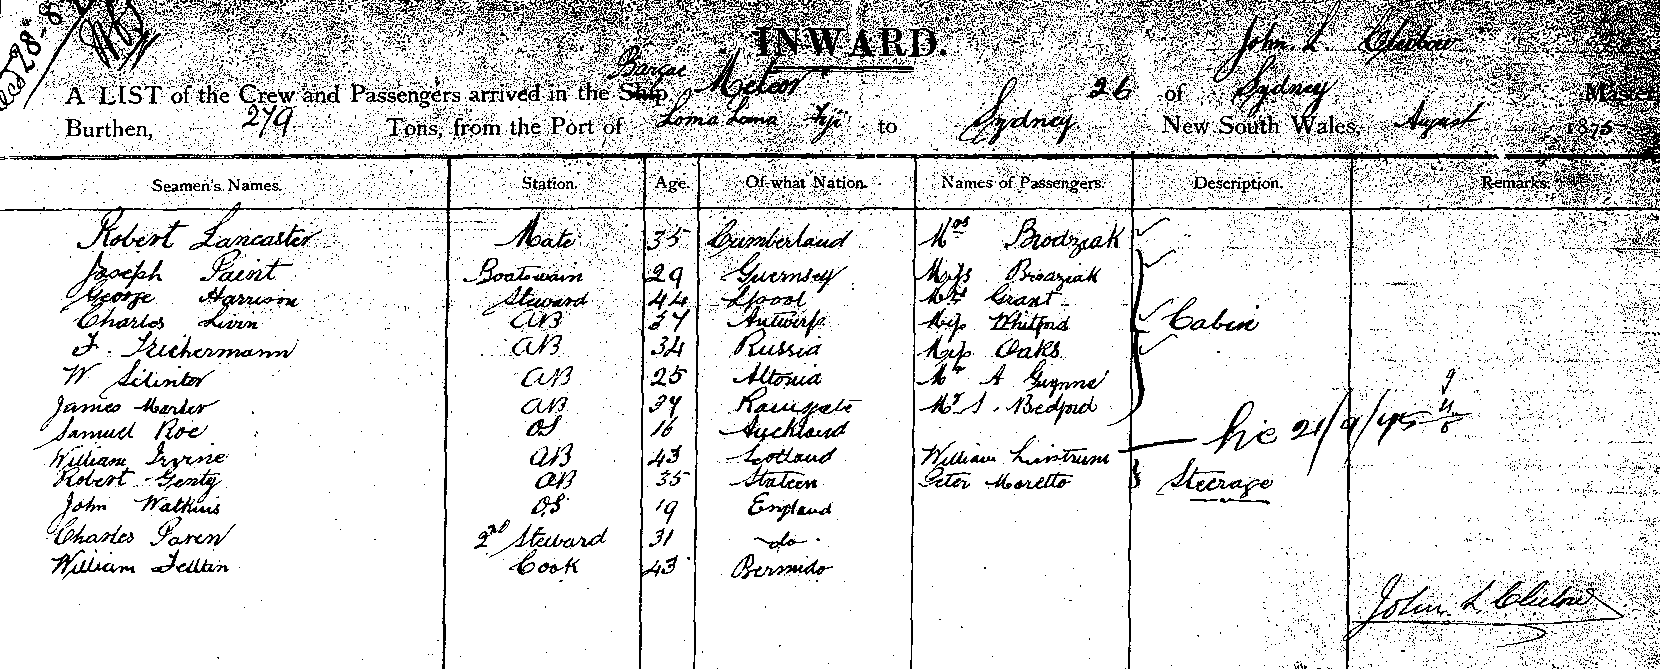 INWARD.
John. L. Clulow
Barque Meteor Sydney
A LIST of the Crew and Passengers arrived in the Ship 26 of Master,
Burthen, 279 Tons, from the Port of Loma Loma Fiji to Sydney New South Wales, August 1875
Seamen's Names. Station. Age. Of what Nation. Names of Passengers. Description. Remarks.
Robert Lancaster Mate 35 Cumberland Mrs Brodziak
Joseph Paint Boatswain 29 Guernsey Miss Brodziak
George Harrison Steward 44 L'pool Mrs Grant
Charles Livin AB 37 Antwerp Miss Whitford Cabin
F. Trichermann AB 34 Russia Miss Oaks
W AB 25 Altonia Mr A Gwynne
James Marler AB 37 Ramsgate Mr S. Bedford
Samuel Roe OS 16 Auckland
William Irvine AB 43 Scotland William Linstrum
Robert Genty AB 35 Staten Peter Moretto Steerage
John Watkins OS 19 England
Charles Paren 2nd Steward 31 do
William Fellan Cook 43 Bermido
John L Clulow